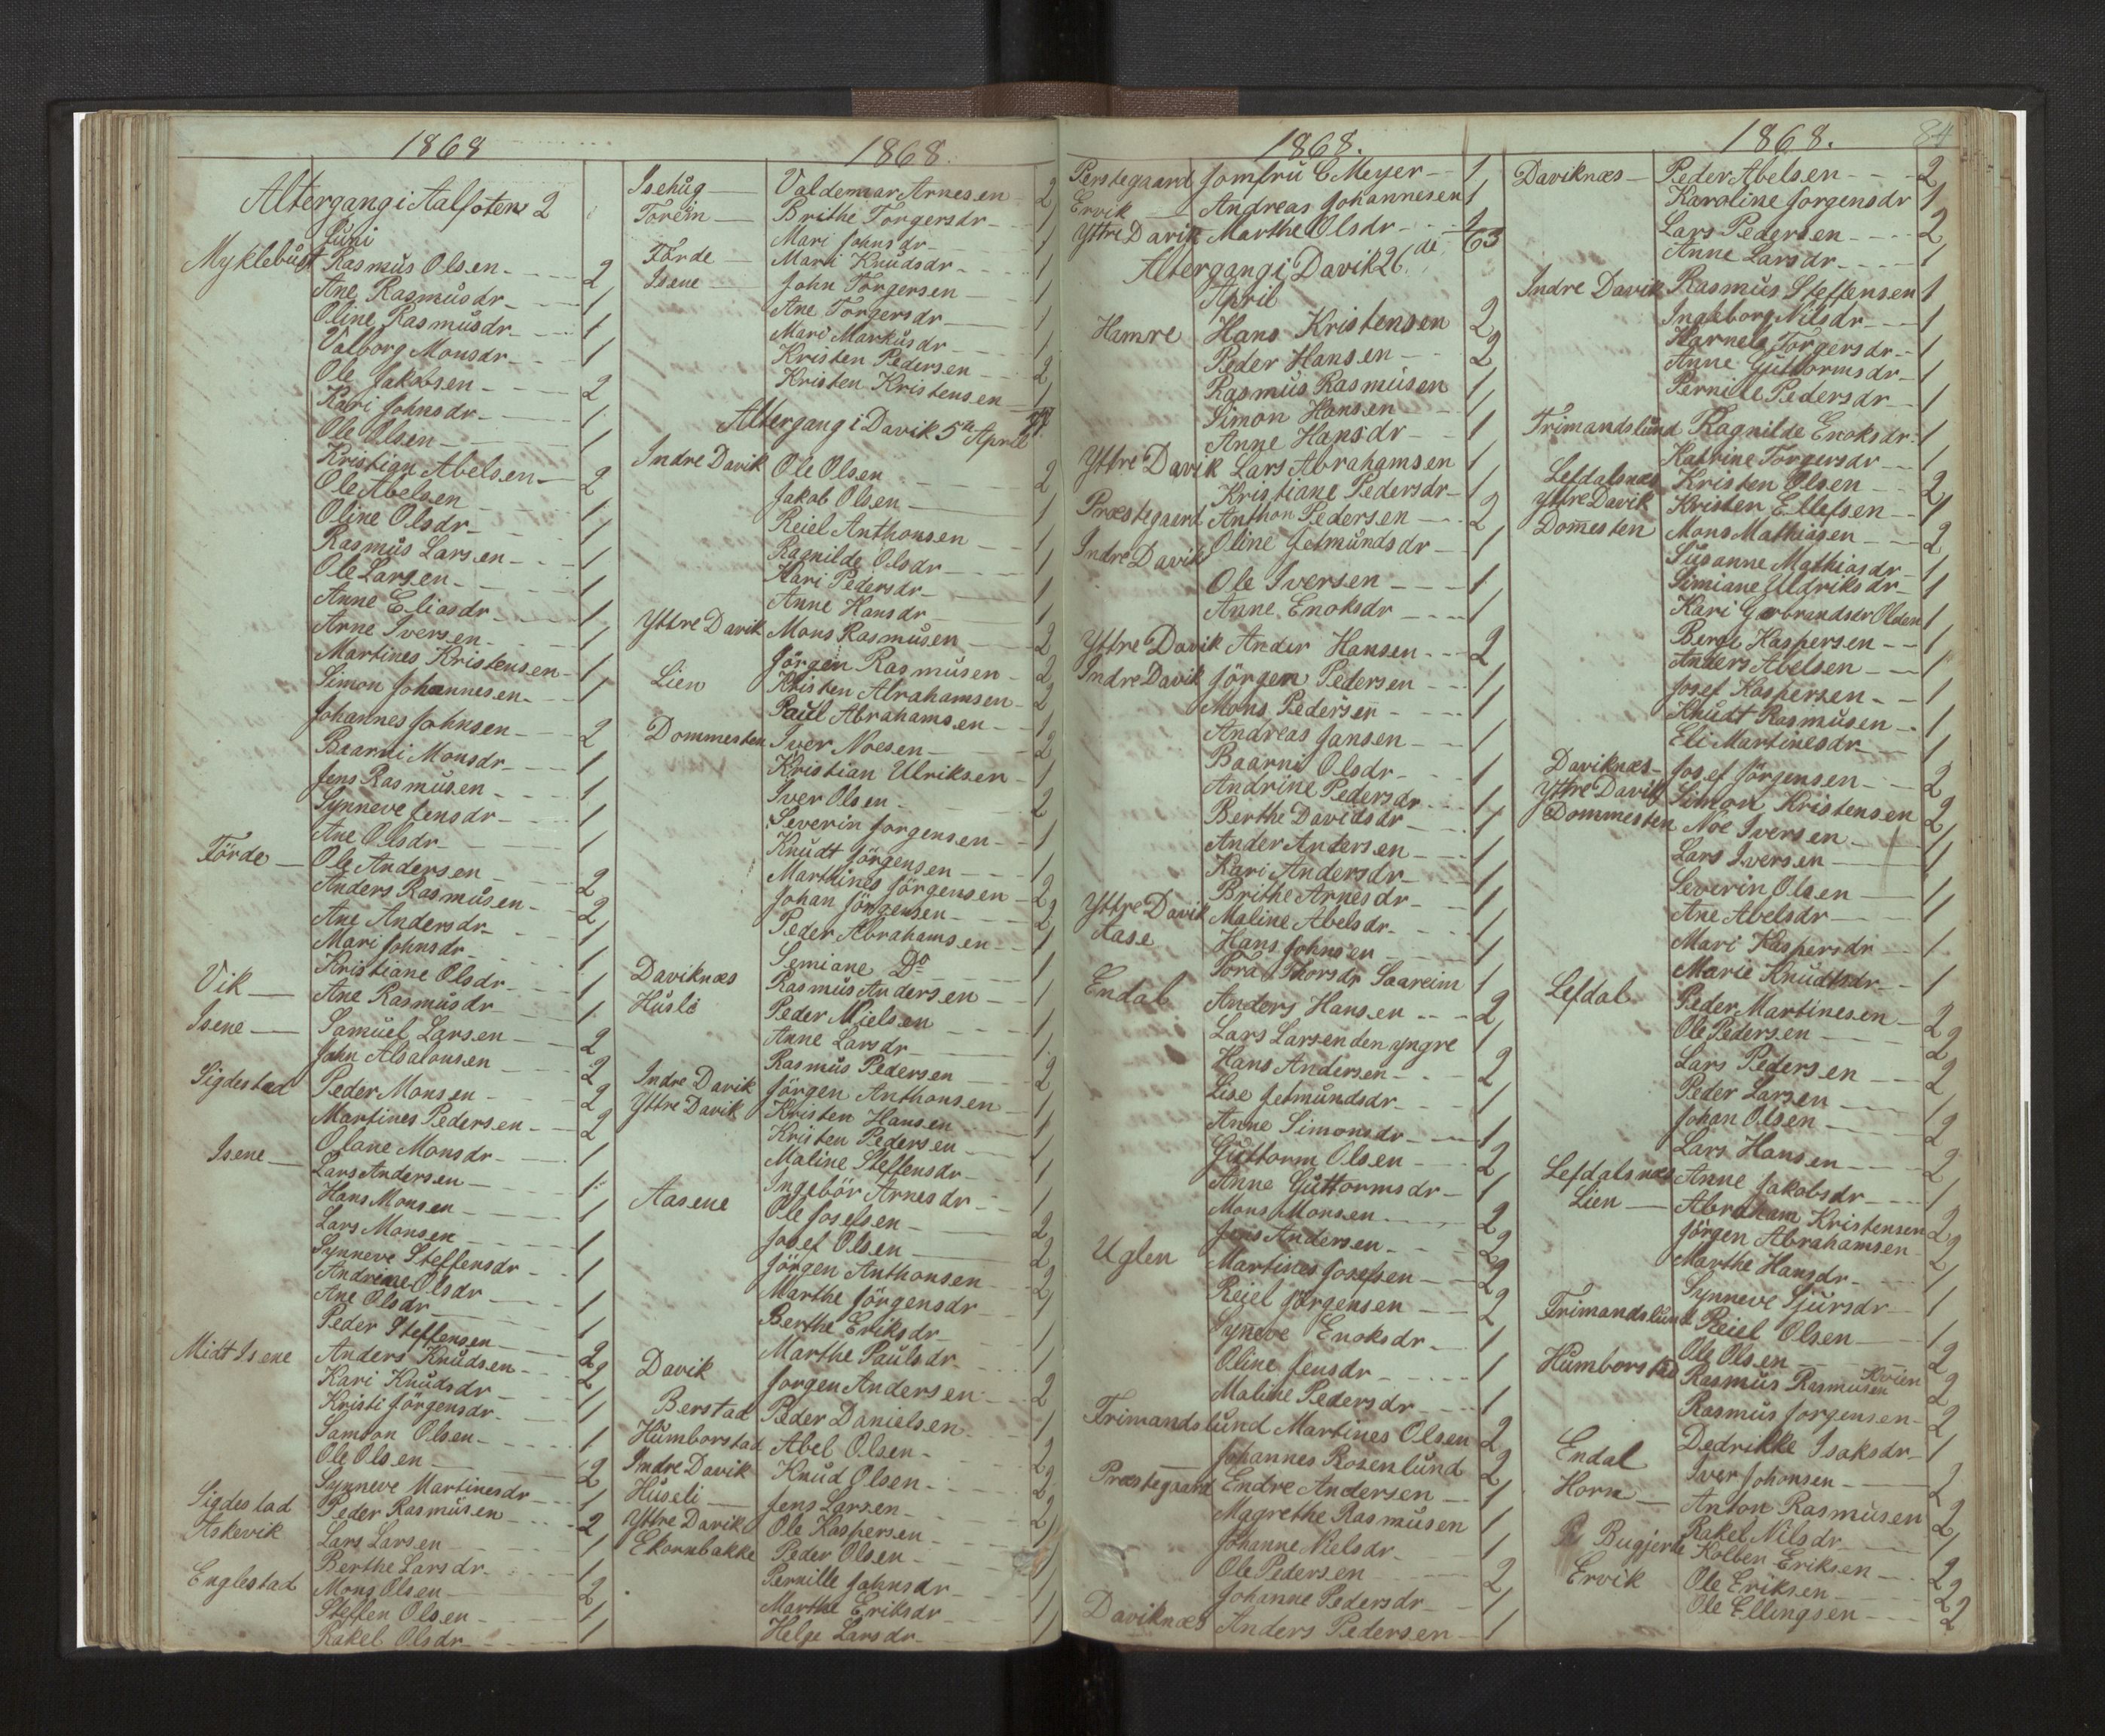 1868
Altergang i Aalfoten 2
Juni
Myklebust Rasmus Olsen 2
Ane Rasmusdr 1
Oline Rasmusdr 1
Valborg Monsdr 1
Ole Jakobsen 2
Kari Johnsdr 1
Ole Olsen 1
Kristian Abelsen 2
Ole Abelsen 1
Oline Olsdr 1
Rasmus Larsen 1
Ole Larsen 1
Anne Eliasdr 1
Arne Iversen 1
Martines Kristensen 1
Simon Johannesen 1
Johannes Johnsen 2
Baarni Monsdr 1
Jens Rasmusen 1
Synneve Jensdr 1
Ane Olsdr 1
Förde Ole Andersen 2
Anders Rasmusen 2
Ane Andersdr 1
Mari Johnsdr 1
Kristiane Olsdr 1
Vik Ane Rasmusdr 1
Isene Samuel Larsen 2
John Absalonsen 2
Sigdestad Peder Monsen 2
Martines Pedersen 2
Olane Monsdr 1
Isene Lars Andersen 1
Hans Monsen 1
Lars Monsen 1
Synneve Steffensdr 1
Andrine Olsdr 1
Ane Olsdr 1
Peder Steffensen 2
Midt Isene Anders Knudsen 2
Kari Knudsdr 1
Kristi Jörgensdr 1
Samson Olsen 1
Ole Olsen 2
Synneve Martinesdr 1
Sigdestad Peder Rasmusen 2
Askevik Lars Larsen 1
Berthe Larsdr 1
Englestad Mons Olsen 2
Steffen Olsen 1
Rakel Olsdr 1
1868.
Isehug Valdemar Arnesen 2
Toreim Brithe Torgersdr 1
Mari Johnsdr 1
Förde Mari Knudsdr 1
Isene John Torgersen 1
Ane Torgersdr 1
Mari Markusdr 1
Kristen Pedersen 2
Kristen Kristensen 1
Altergang i Davik 5te April
Indre Davik Ole Olsen 2
Jakob Olsen 1
Reiel Anthonsen 1
Ragnilde Olsdr 1
Kari Pedersdr 1
Anne Hansdr 1
Yttre Davik Mons Rasmusen 2
Jörgen Rasmusen 2
Lien Kristen Abrahamsen 2
Paul Abrahamsen 1
Dommesten Iver Noesen 2
Kristian Ulriksen 1
Iver Olsen 2
Severin Jorgensen 1
Knudt Jörgensen 1
Marthines Jörgensen 2
Johan Jörgensen 2
Peder Abrahamsen 1
Semiane Do 1
Daviknæs Rasmus Andersen 1
Husli Peder Nielsen 1
Anne Larsdr 1
Rasmus Pedersen 2
Indre Davik Jörgen Anthonsen 1
Yttre Davik Kristen Hansen 1
Kristen Pedersen 1
Maline Steffensdr 1
Ingebör Arnesdr 1
Aasene Ole Josefsen 2
Josef Olsen 2
Jörgen Anthonsen 2
Marthe Jörgensdr 1
Berthe Eriksdr 1
Marthe Paulsdr 1
Davik Jorgen Andersen 2
Berstad Peder Danielsen 1
Humborstad Abel Olsen 2
Indre Davik Knud Olsen 2
Huseli Jens Larsen 2
Yttre Davik Ole Kaspersen 1
Ekornbakke Peder Olsen 1
Pernille Johnsdr 1
Marthe Eriksdr 1
Helge Larsdr 1
1868.
Perstegaard Jomfru C Meyer 1
Ervik Andreas Johannesen 1
Yttre Davik Marthe Olsdr 1
63
Altergang i Davik 26de
April
Hamre Hans Kristensen 2
Peder Hansen 2
Rasmus Rasmusen 1
Simon Hansen 1
Anne Hansdr 1
Yttre Davik Lars Abrahamsen 1
Kristiane Pedersdr 1
Præstegaard Anthon Pedersen 2
Oline Jetmundsdr 1
Indre Davik
Ole Iversen 1
Anne Enoksdr 1
Yttre Davik Ander Hansen 2
Indre Davik Jörgen Pedersen 1
Mons Pedersen 1
Andreas Jansen 1
Baarni Olsdr 1
Andrine Pedersdr 1
Berthe Davidsdr 1
Ander Andersen 1
Kari Andersdr 1
Brithe Arnesdr 1
Yttre Davik Maline Abelsdr 1
Aase Hans Johnsen 1
Tora Thorsdr Saareim 1
Endal Anders Hansen 2
Lars Larsen den yngre 1
Hans Andersen 2
Lise Jetmundsdr 1
Anne Simonsdr 1
Guttorm Olsen 2
Anne Guttormsdr 1
Mons Monsen 2
Jens Andersen 2
Uglen Martines Josefsen 2
Reiel Jörgensen 2
Synneve Enoksdr 1
Oline Jensdr 1
Maline Pedersdr 1
Frimandslund Martines Olsen 2
Johannes Rosenlund 2
Præstegaard Endre Andersen 1
Magrethe Rasmusen 1
Johanne Nielsdr 1
Ole Pedersen 2
Johanne Pedersdr 1
Daviknæs Anders Pedersen 1
1868. 84
Daviknæs Peder Abelsen 2
Karoline Jorgensdr 1
Lars Pedersen 2
Anne Larsdr 1
Indre Davik Rasmus Steffensen 1
Ingeborg Nilsdr 1
Karnele Torgersdr 1
Anne Guttormsdr 1
Pernille Pedersdr 1
Frimandslund Ragnilde Enoksdr 1
Katrine Torgersdr 1
Lefdalsnæs Kristen Olsen 2
Yttre Davik Kristen Ellefsen 1
Domesten Mons Mathiasen 2
Susanne Mathiasdr 1
Simiane Uldriksdr 1
Kari Gerbrandsdr Olden 1
Berge Kaspersen 1
Anders Abelsen 1
Josef Kaspersen 1
Knudt Rasmusen 1
Eli Martinesdr 1
Daviknæs Josef Jörgensen 2
Yttre Davik Simon Kristensen 2
Dommesten Noe Iversen 1
Lars Iversen 1
Severin Olsen 1
Ane Abelsdr 1
Mari Kaspersdr 1
Marie Knudtsdr 1
Lefdal Peder Martinesen 2
Ole Pedersen 2
Lars Pedersen 2
Peder Larsen 1
Johan Olsen 2
Lars Hansen 2
Lefdalsnæs Anne Jakobsdr 1
Lien Abraham Kristensen 2
Jörgen Abrahamsen 2
Marthe Hansdr 1
Synneve Sjursdr 1
Frimandslund Reiel Olsen 1
Ole Olsen 2
Humborstad Rasmus Rasmusen Kvien 2
Rasmus Jorgensen 2
Dedrikke Isaksdr 1
Endal Iver Johonsen 2
Horn Anton Rasmusen 2
Rakel Nilsdr 1
Bugjerde Kolben Eriksen 2
Ervik Ole Eriksen 2
Ole Ellingsen 2